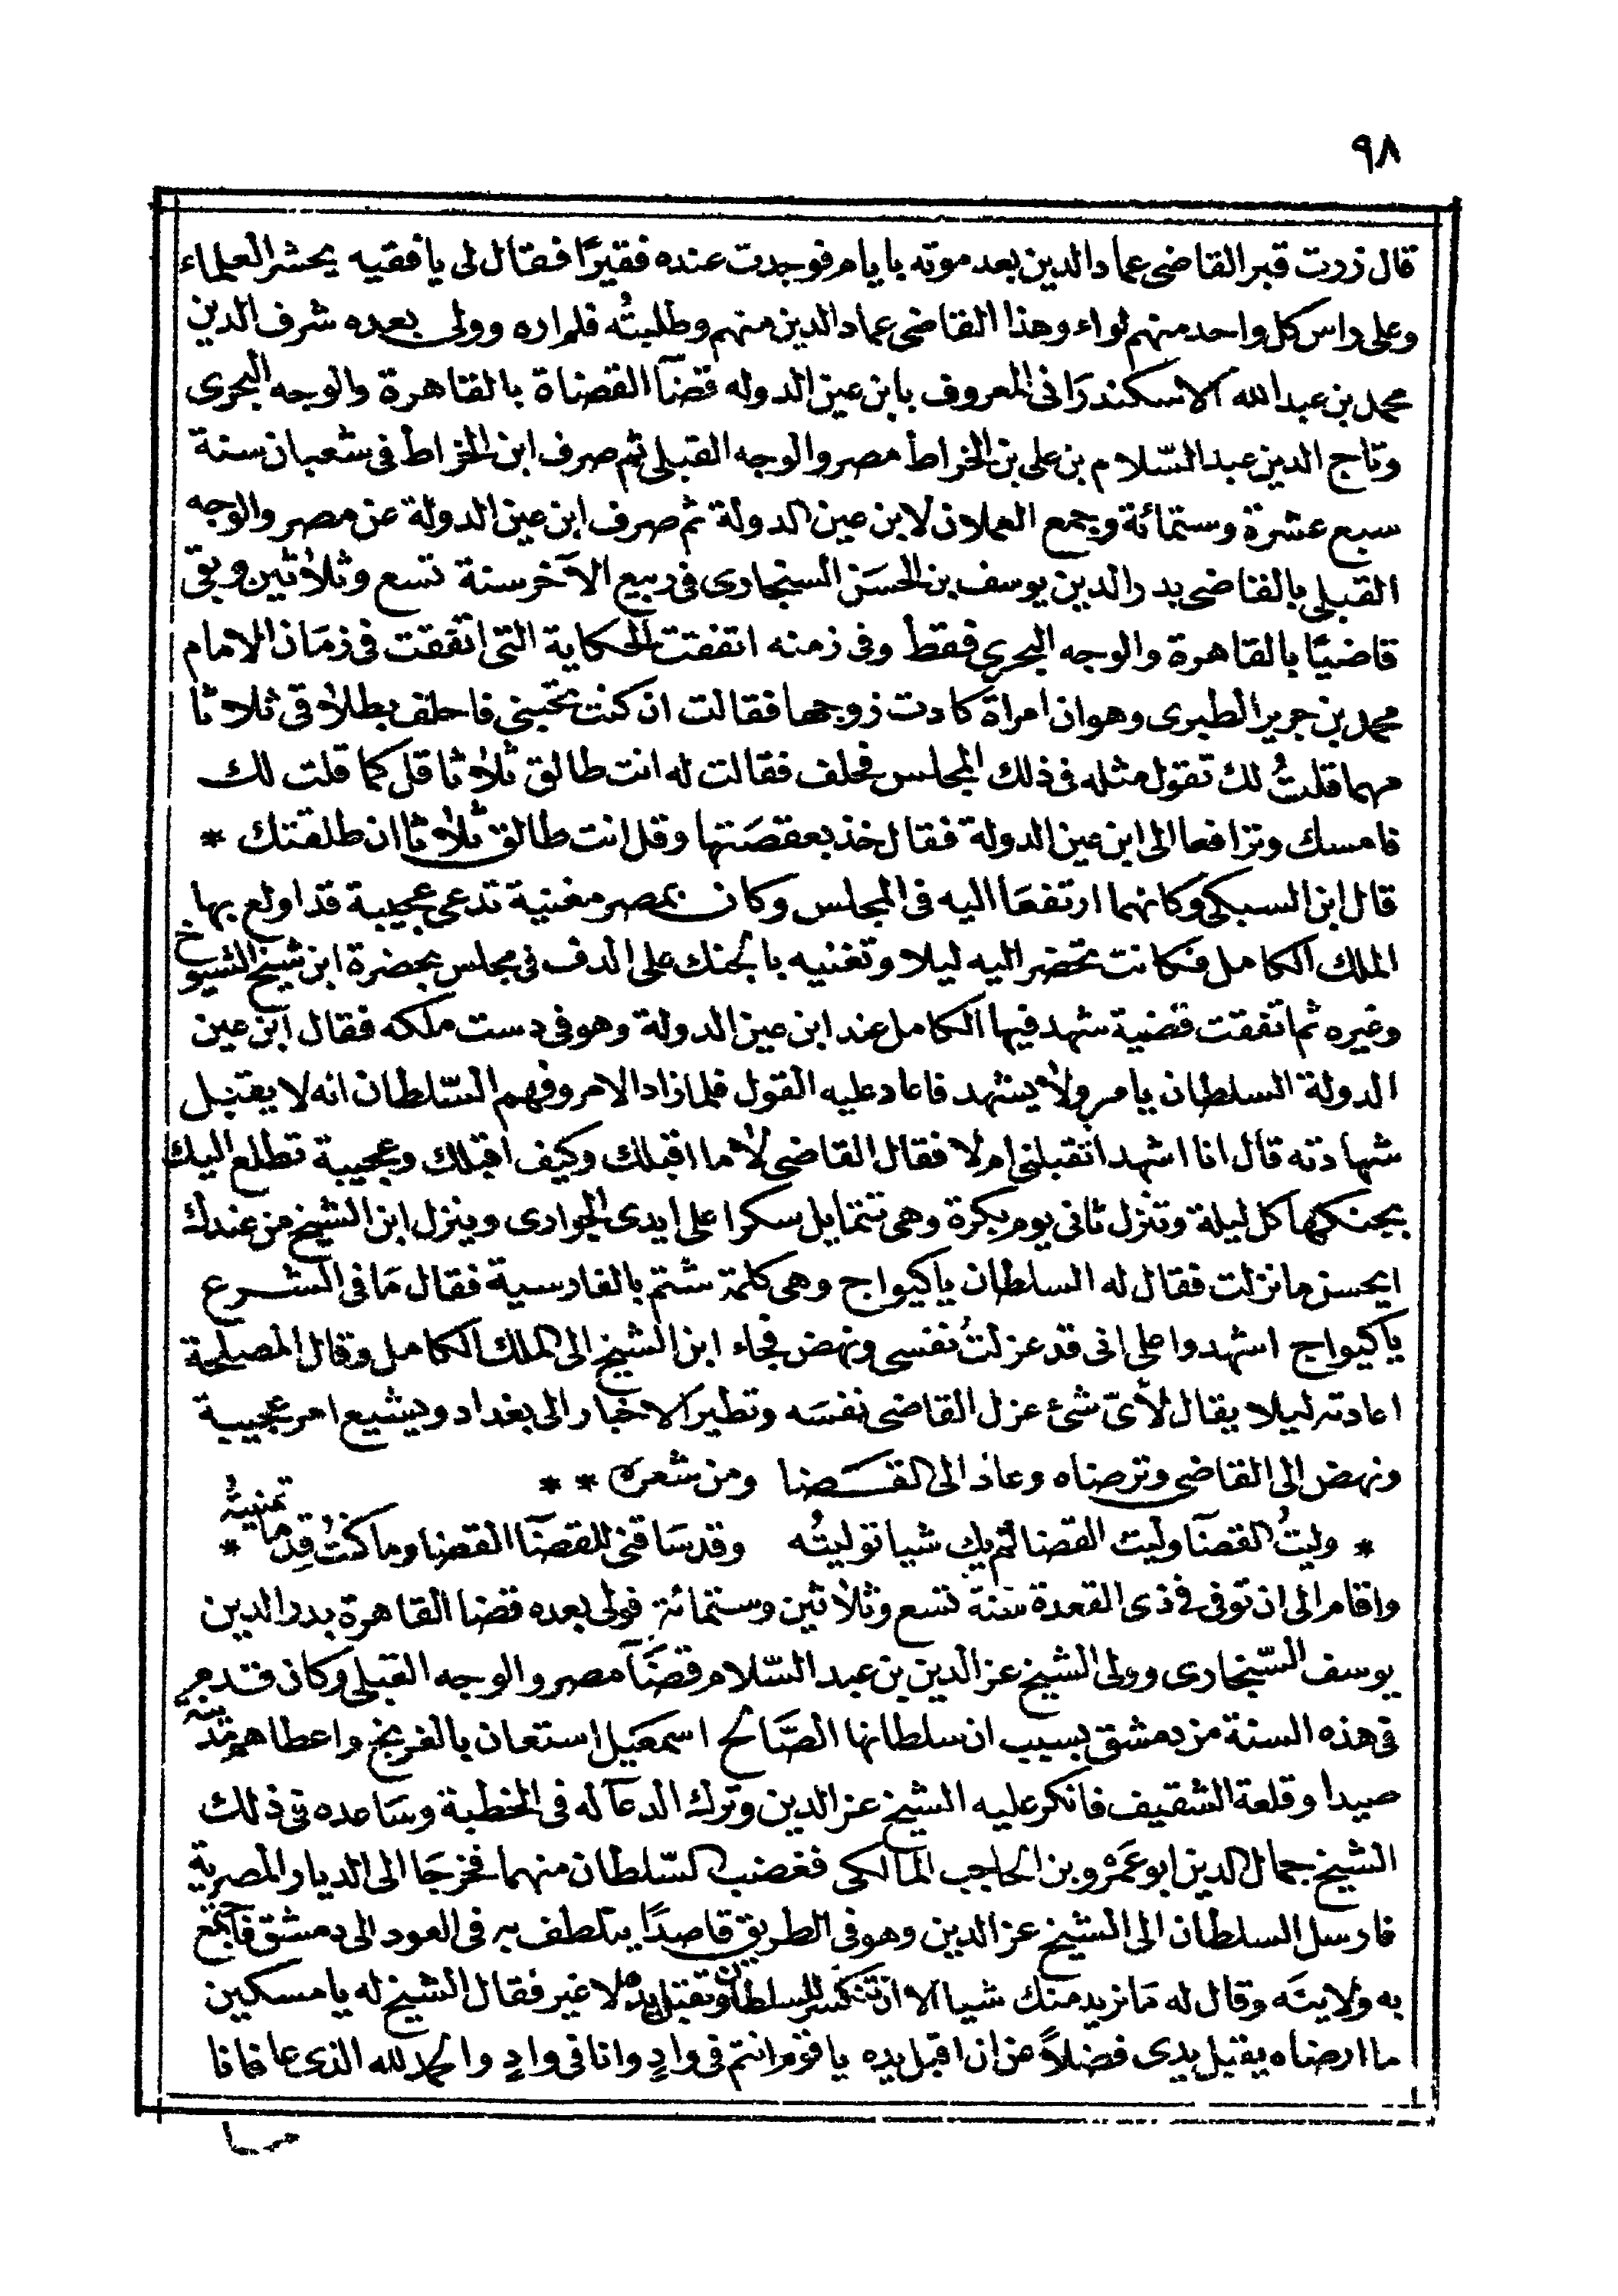 ٩٨
قال زرت قبر القاضى عماد الدين بعد موته بايام فوجدت عنده فقيرًا فقال لى يا فقيه يحشر العلماء
وعلى راس كل واحد منهم لواء وهذا القاضى عماد الدين منهم وطلبتُه فلم اره وولى بعده شرف الدين
محمد بن عبد الله الاسكندرانى المعروف بابن عين الدوله قضآ القضاة بالقاهرة والوجه البحرى
وتاج الدين عبد السّلام بن على بن الخراط مصر والوجه القبلى ثم صرف ابن الخراط فى شعبان سنة
سبع عشرة وستمائة وجمع العملان لابن عين الدولة ثم صرف ابن عين الدولة عن مصر والوجه
القبلى بالقاضى بدر الدين يوسف بن الحسَن السنجارى فى ربيع الآخر سنة تسع وثلاثين وبقى
قاضيًا بالقاهرة والوجه البحرى فقط وفى زمنه اتفقت الحكاية التى اتفقت فى زمَان الامام
محمد بن جرير الطبرى وهو ان امراة كادت زوجها فقالت ان كنت تحبنى فاحلف بطلاقى ثلاثا
مهما قلتُ لك تقول مثله فى ذلك المجلس فحلف فقالت له انت طالق ثلاثا قل كما قلت لك
فامسك وترافعا الى ابن عين الدولة فقال خذ بعقصَتها وقل انت طالق ثلاثا ان طلقتك *
قال ابن السبكى وكانهما ارتفعَا اليه فى المجلس وكان بمصر مغنية تدعى عجيبة قد اولع بها
الملك الكامل فكانت تحضر اليه ليلا وتغنيه بالجنك على الدف فى مجلس بحضرة ابن شيخ الشيوخ
وغيره ثم اتفقت قضية شهد فيها الكامل عند ابن عين الدولة وهو فى دست ملكه فقال ابن عين
الدولة السلطان يامر ولا يشهد فاعاد عليه القول فلما زاد الامر وفهم السّلطان انه لا يقبل
شهادته قال انا اشهد اتقبلنى ام لا فقال القاضى لا ما اقبلك وكيف اقبلك وعجيبة تطلع اليك
بجنكها كل ليلة وتنزل ثانى يوم بكرة وهى تتمايل سكرا على ايدى الجوارى وينزل ابن الشيخ من عندك
ايحسن ما نزلت فقال له السلطان يا كيواج وهى كلمة شتم بالفارسية فقال مَا فى الشرع
يا كيواج اشهدوا على انى قد عزلتُ نفسى ونهض فجاء ابن الشيخ الى الملك الكامل وقال المصلحة
اعادته ليلا يقال لأىّ شئ عزل القاضى نفسَه وتطير الاخبار الى بغداد ويشيع امر عجيبة
ونهض الى القاضى وترضاه وعاد الى القضا ومن شعره **
* وليتُ القضآ وليت القضا لم يك شيا توليتُه وقد سَاقنى للقضآ القضا وما كنتُ قِدمًا تمنيتُه *
واقام الى ان توفى فى ذى القعدة سنة تسع وثلاثين وستمائة فولى بعده قضا القاهرة بدر الدين
يوسف السّنجارى وولى الشيخ عز الدين بن عبد السّلام قضَآ مصر والوجه القبلى وكان قدم
فى هذه السنة من دمشق بسبب ان سلطانها الصَّالح اسمعيل استعان بالفرنج واعطاهم مدينة
صيدا وقلعة الشقيف فانكر عليه الشيخ عز الدين وترك الدعآ له فى الخطبة وسَاعده فى ذلك
الشيخ جمال الدين ابو عَمْرو بن الحاجب المالكى فغضب السّلطان منهما فخرجَا الى الديار المصرية
فارسل السلطان الى الشيخ عز الدين وهو فى الطريق قاصدًا يتلطف به فى العود الى دمشق فاجتمع
به ولاينَه وقال له مَا نريد منك شيا الا ان تنكسر للسلطان وتقبل يده لا غير فقال الشيخ له يا مسكين
ما ارضاه يقبل يدى فضلاً عن ان اقبل يده يا قوم انتم فى وادٍ وانا فى وادٍ والحمد لله الذى عافانا